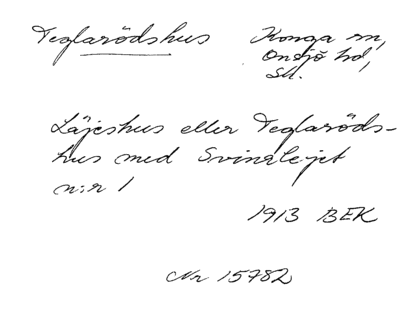 Teglarödshus Konga sn,
Onsjö hd,
Sk.
Läjeshus eller Teglaröds-
hus med Svinalejet
n:r 1
1913 BEK
Nr 15782